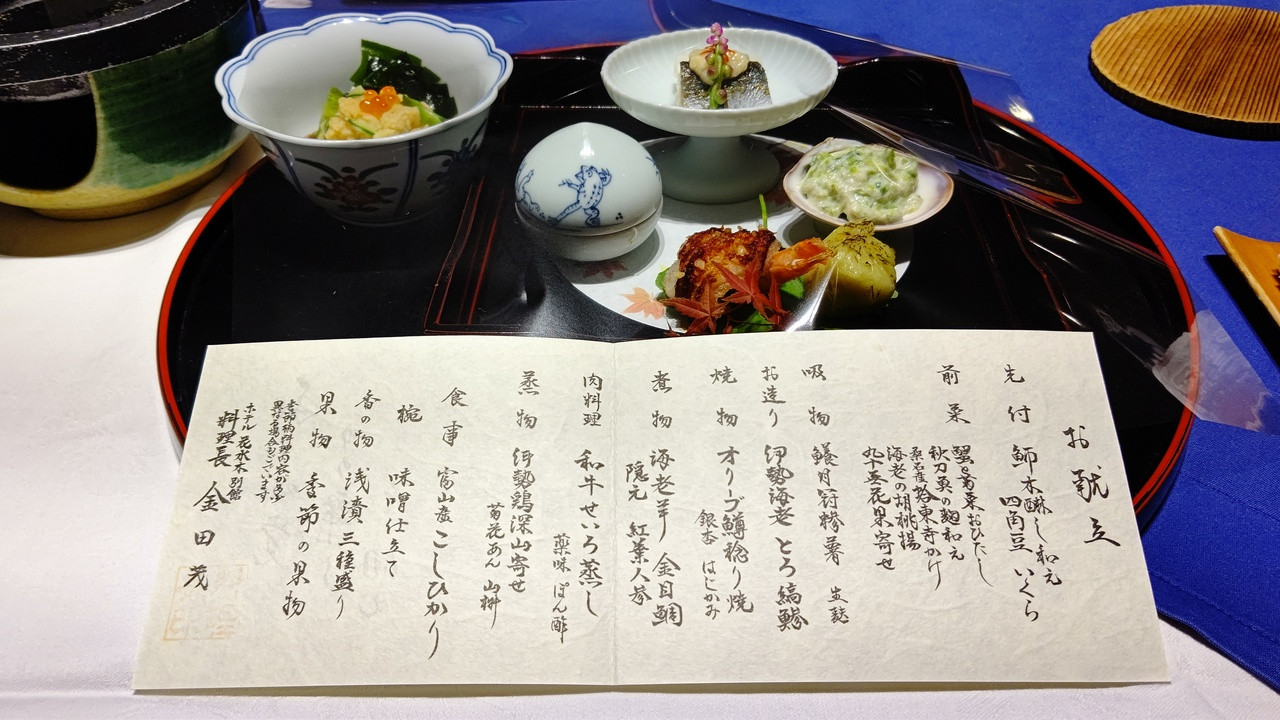 お献立
先付 鰤木酥し和え
四角豆 いくら
前菜 蟹と菊菜おひたし
秋刀魚の麹和え
東寺かけ
海老の胡桃揚
無花果寄せ
吸物 鰻月冠椮薯
お造り 伊勢海老 とろ 縞鯵
焼物 オリーブ鱒稔り焼
銀杏 はじかみ
煮物 海老芋 金目鯛
隠元 紅葉人参
肉料理 和牛せいろ蒸し
薬味 ぽん酢
蒸物 伊勢鶏深山寄せ
菊花あん 山椒
食事 富山産こしひかり
椀 味噌仕立て
香の物 浅漬三種盛り
果物 季節の果物
季節柄料理内容が多少
異なる場合もございます
ホテル花水木別館
料理長 金田 茂